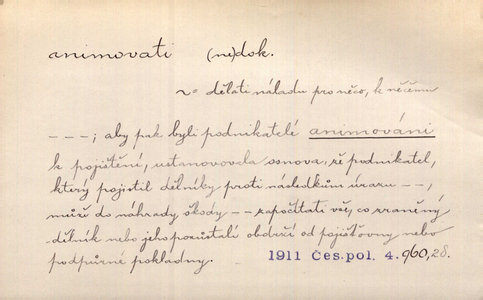 animovati (ne)dok.
~ = dělati náladu pro něco, k něčemu
- - - ; aby pak byli podnikatelé animováni
k pojištění, ustanovovala osnova, že podnikatel,
který pojistil dělníky proti následkům úrazu - - ,
může do náhrady škody - - započítati vše, co zraněný
dělník nebo jeho pozůstalí obdrží od pojišťovny nebo
podpůrné pokladny. 1911 Čes. pol. 4. 960, 28.